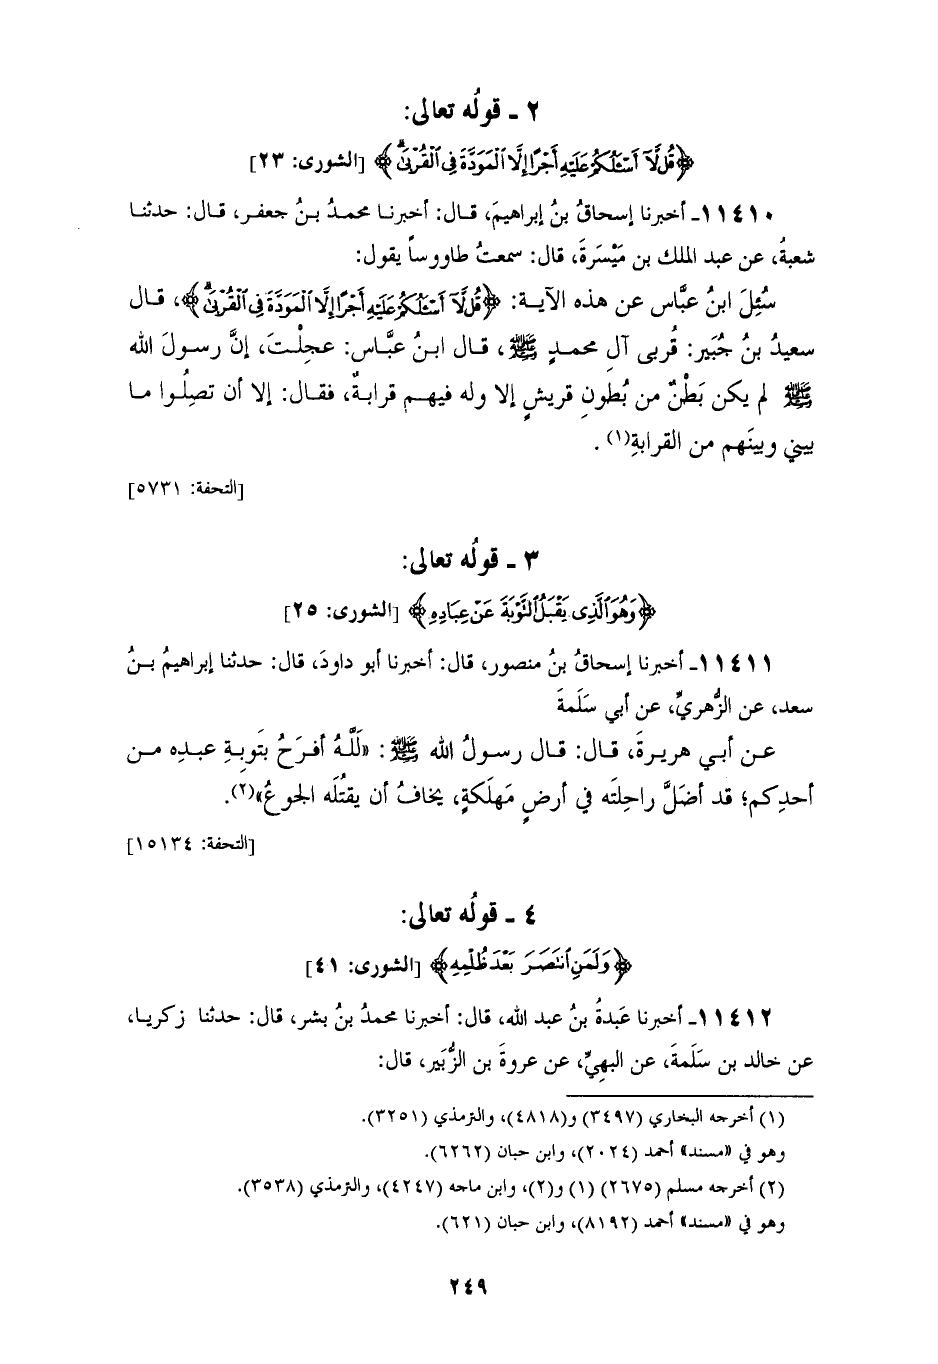 ٢ ـ قولُه تعالى:
﴿قُل لَّآ أَسْـَٔلُكُمْ عَلَيْهِ أَجْرًا إِلَّا ٱلْمَوَدَّةَ فِى ٱلْقُرْبَىٰۗ﴾ [الشورى: ٢٣]
١١٤١٠ـ أخبرنا إسحاقُ بنُ إبراهيمَ، قال: أخبرنا محمدُ بنُ جعفر، قال: حدثنا
شعبةُ، عن عبد الملك بن مَيْسَرةَ، قال: سمعتُ طاووساً يقول:
سُئِلَ ابنُ عبَّاس عن هذه الآية: ﴿قُل لَّآ أَسْـَٔلُكُمْ عَلَيْهِ أَجْرًا إِلَّا ٱلْمَوَدَّةَ فِى ٱلْقُرْبَىٰۗ﴾، قال
سعيدُ بنُ جُبَير: قُربى آل محمدٍ ﷺ، قال ابنُ عبَّاس: عجلْتَ، إنَّ رسولَ الله
ﷺ لم يكن بَطْنٌ من بُطونِ قريشٍ إلا وله فيهم قرابةٌ، فقال: إلا أن تصلُوا ما
بيني وبينَهم من القرابةِ(١) .
[التحفة: ٥٧٣١]
٣ ـ قولُه تعالى:
﴿وَهُوَ ٱلَّذِى يَقْبَلُ ٱلتَّوْبَةَ عَنْ عِبَادِهِ﴾ [الشورى: ٢٥]
١١٤١١ـ أخبرنا إسحاقُ بنُ منصور، قال: أخبرنا أبو داودَ، قال: حدثنا إبراهيمُ بنُ
سعد، عن الزُّهريِّ، عن أبي سَلَمةَ
عن أبي هريرةَ، قال: قال رسولُ الله ﷺ: «لَلَّهُ أفرَحُ بتَوبةِ عبدِه من
أحدِكم؛ قد أضلَّ راحِلتَه في أرضٍ مَهلَكةٍ، يخافُ أن يقتُلَه الجوعُ»(٢).
[التحفة: ١٥١٣٤]
٤ ـ قولُه تعالى:
﴿وَلَمَنِ ٱنتَصَرَ بَعْدَ ظُلْمِهِ﴾ [الشورى: ٤١]
١١٤١٢ـ أخبرنا عَبدةُ بنُ عبد الله، قال: أخبرنا محمدُ بنُ بشر، قال: حدثنا زكريا،
عن خالد بن سَلَمةَ، عن البهيِّ، عن عروةَ بن الزُّبَير، قال:
(١) أخرجه البخاري (٣٤٩٧) و(٤٨١٨)، والترمذي (٣٢٥١).
وهو في «مسند» أحمد (٢٠٢٤)، وابن حبان (٦٢٦٢).
(٢) أخرجه مسلم (٢٦٧٥) (١) و(٢)، وابن ماجه (٤٢٤٧)، والترمذي (٣٥٣٨).
وهو في «مسند» أحمد (٨١٩٢)، وابن حبان (٦٢١).
٢٤٩